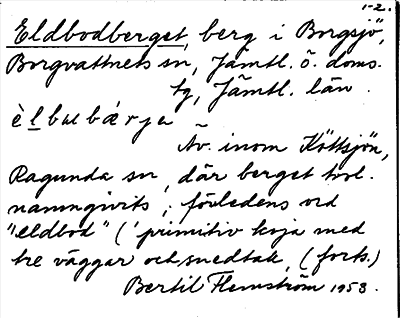 1-2.
Eldbodberget, berg i Borgsjö,
Borgvattnets sn, Jämtl. ö. doms.
tg, Jämtl. län.
Äv. inom Köttsjön,
Ragunda sn, där berget trol.
namngivits; förledens ord
"eldbod" (' primitiv koja med
tre väggar och snedtak, (forts.)
Bertil Flemström 1953.